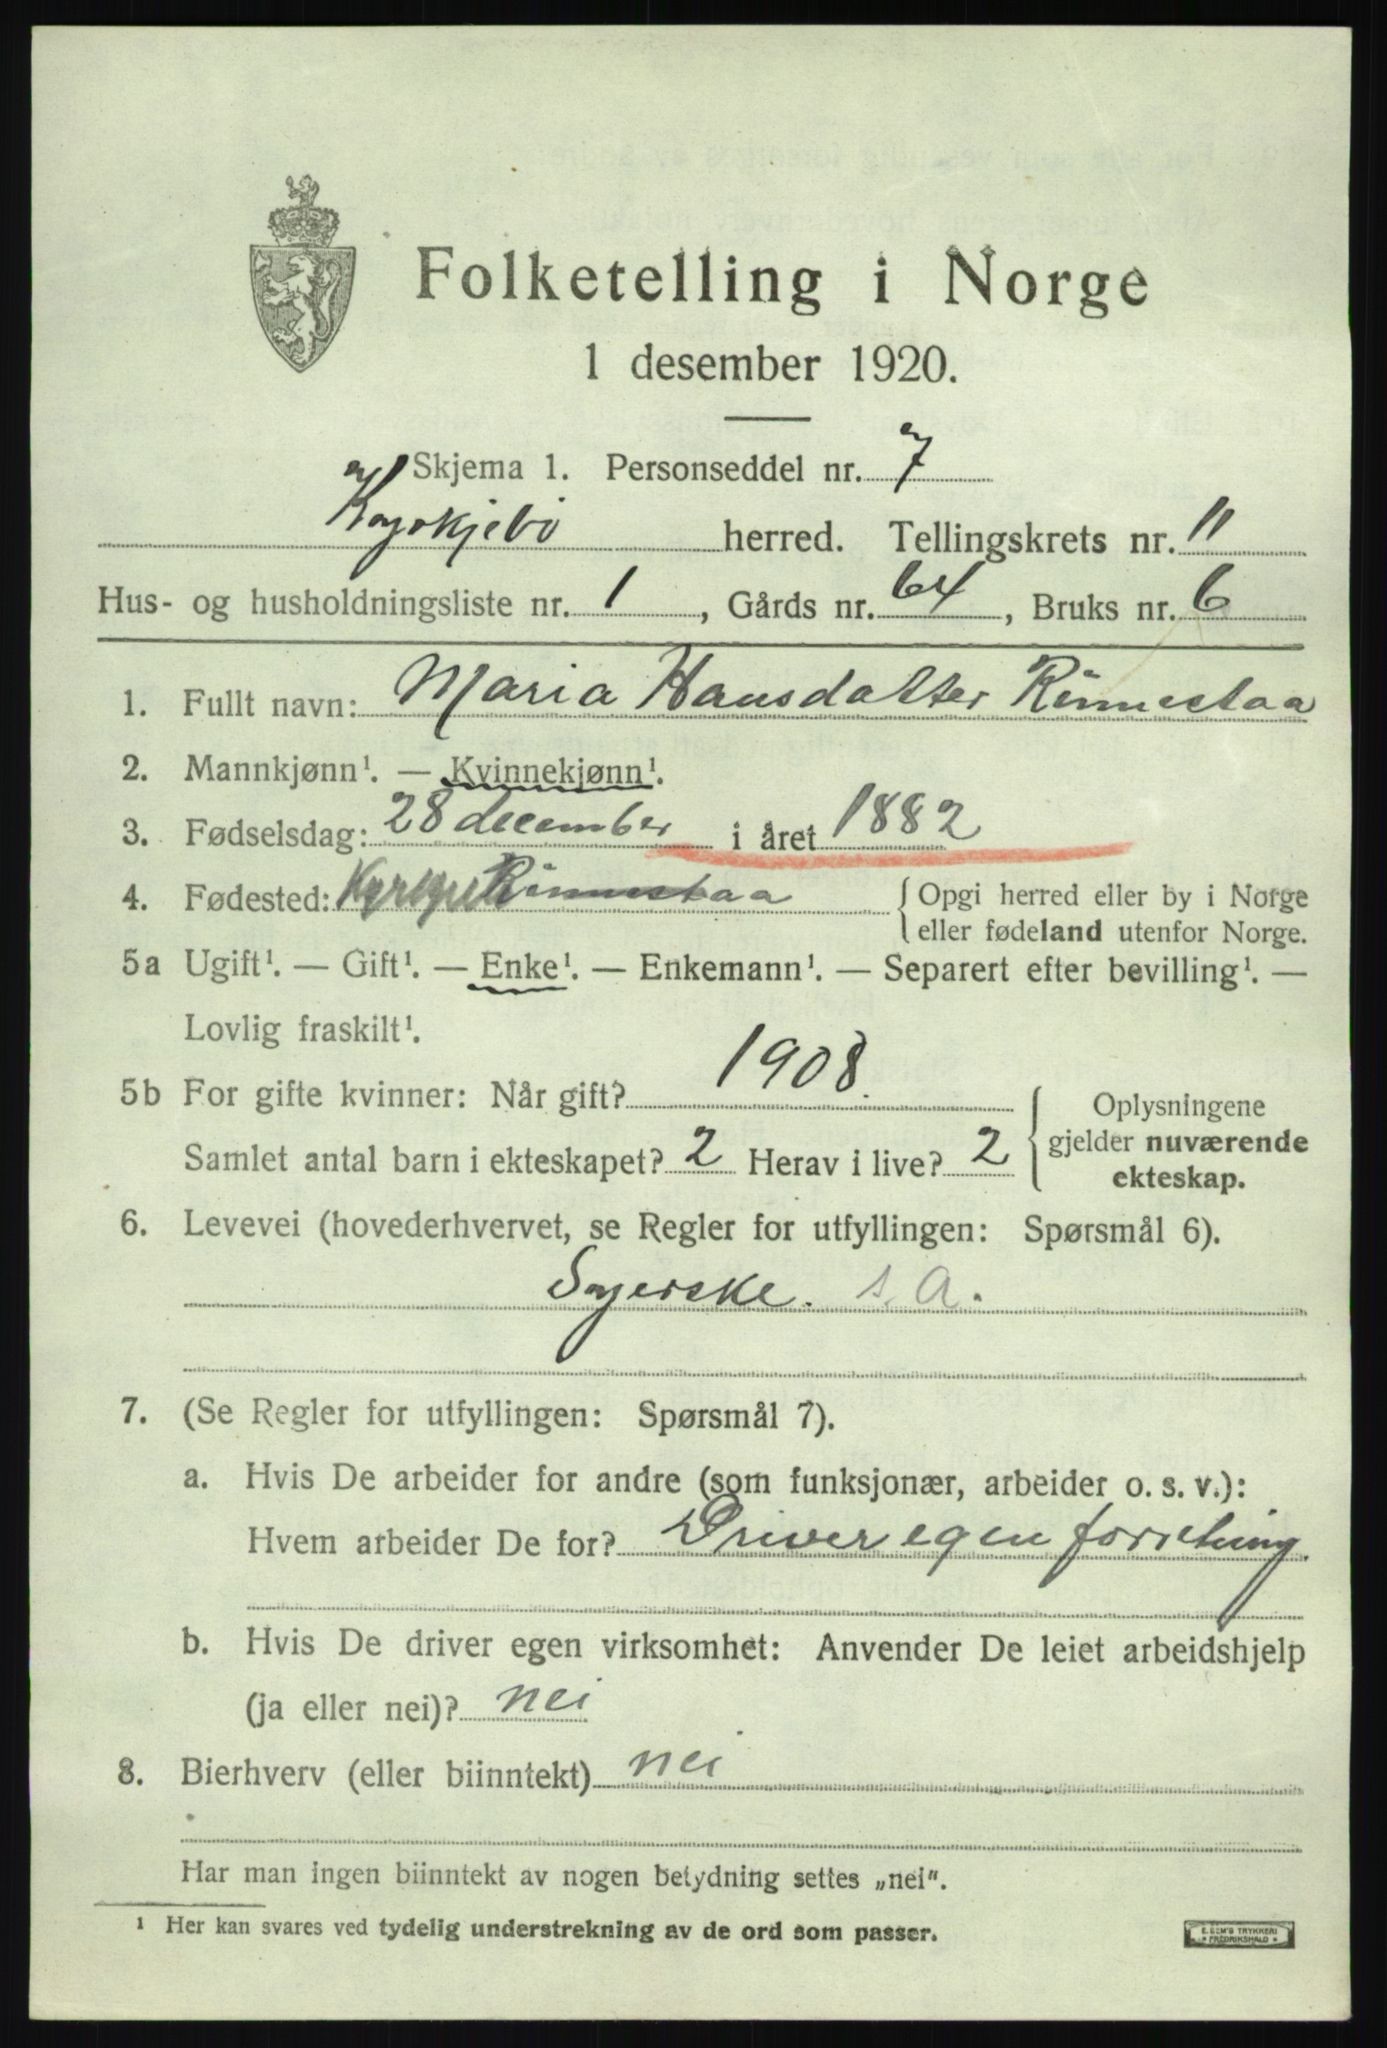 Folketelling i Norge
1 desember 1920.
Skjema 1. Personseddel nr. 7
Kyrkjebö herred. Tellingskrets nr. 11
Hus- og husholdningsliste nr. 1, Gårds nr. 64, Bruks nr. 6
1. Fullt navn: Maria Hansdatter Rinnestaa
2. Mannkjønn¹. — Kvinnekjønn¹.
3. Fødselsdag: 28 december i året 1882
4. Fødested: Rinnestaa { Opgi herred eller by i Norge
eller fødeland utenfor Norge.
5a Ugift¹. — Gift¹. — Enke¹. — Enkemann¹. — Separert efter bevilling¹. —
Lovlig fraskilt¹.
5b For gifte kvinner: Når gift? 1908. { Oplysningene
Samlet antal barn i ekteskapet? 2 Herav i live? 2 gjelder nuværende
ekteskap.
6. Levevei (hovederhvervet, se Regler for utfyllingen: Spørsmål 6).
Syerske. s. A.
7. (Se Regler for utfyllingen: Spørsmål 7).
a. Hvis De arbeider for andre (som funksjonær, arbeider o. s. v.):
Hvem arbeider De for? Driver egen forretning
b. Hvis De driver egen virksomhet: Anvender De leiet arbeidshjelp
(ja eller nei)? nei
8. Bierhverv (eller biinntekt) nei
Har man ingen biinntekt av nogen betydning settes „nei".
¹ Her kan svares ved tydelig understrekning av de ord som passer.
E. SEM'S TRYKKERI
* FREDRIKSHALD *